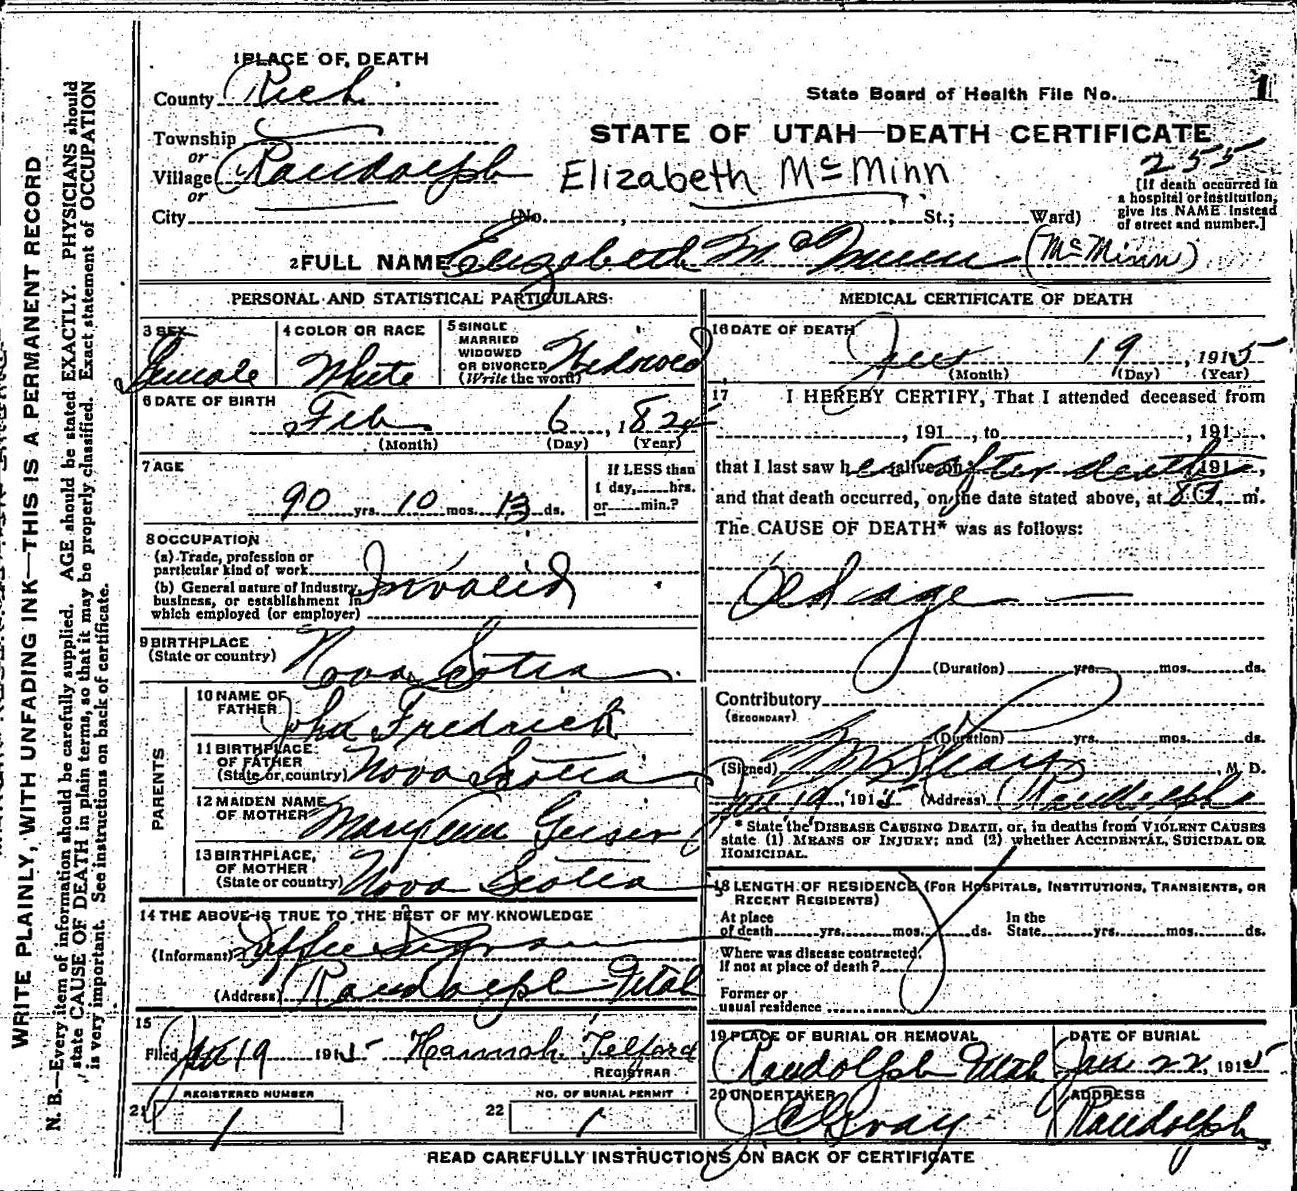 1 PLACE OF DEATH
County Rich
State Board of Health File No. 1
Township
or
Village Randolph
or
STATE OF UTAH—DEATH CERTIFICATE
255
Elizabeth McMinn
[If death occurred in
a hospital or institution,
give its NAME instead
of street and number.]
City (No. , St.; Ward)
2 FULL NAME Elizabeth McMinn (McMinn)
PERSONAL AND STATISTICAL PARTICULARS
3 SEX
Female
4 COLOR OR RACE
White
5 SINGLE
MARRIED
WIDOWED
OR DIVORCED
(Write the word)
Widowed
6 DATE OF BIRTH
Feb 6, 1824
(Month) (Day) (Year)
7 AGE
90 yrs. 10 mos. 13 ds.
If LESS than
1 day, hrs.
or min.?
8 OCCUPATION
(a) Trade, profession or
particular kind of work
(b) General nature of Industry,
business, or establishment in
which employed (or employer)
Invalid
9 BIRTHPLACE
(State or country)
Nova Scotia
PARENTS
10 NAME OF
FATHER
John Fredrick
11 BIRTHPLACE
OF FATHER
(State or country)
Nova Scotia
12 MAIDEN NAME
OF MOTHER
Mary
13 BIRTHPLACE,
OF MOTHER
(State or country)
Nova Scotia
14 THE ABOVE IS TRUE TO THE BEST OF MY KNOWLEDGE
(Informant)
(Address) Randolph Utah
15
Filed Jan 19 1915 Hannah Telford
REGISTRAR
REGISTERED NUMBER
21 1
NO. OF BURIAL PERMIT
22 1
MEDICAL CERTIFICATE OF DEATH
16 DATE OF DEATH
Jan 19, 1915
(Month) (Day) (Year)
17 I HEREBY CERTIFY, That I attended deceased from
, 191 , to , 191 ,
that I last saw her alive on after death, 191 ,
and that death occurred, on the date stated above, at 8 m.
The CAUSE OF DEATH* was as follows:
Old age
(Duration) yrs. mos. ds.
Contributory
(SECONDARY)
(Duration) yrs. mos. ds.
(Signed) M. D.
Jan 19, 1915 (Address) Randolph
* State the DISEASE CAUSING DEATH, or, in deaths from VIOLENT CAUSES
state (1) MEANS OF INJURY; and (2) whether ACCIDENTAL, SUICIDAL OR
HOMICIDAL.
18 LENGTH OF RESIDENCE (FOR HOSPITALS, INSTITUTIONS, TRANSIENTS, OR
RECENT RESIDENTS)
At place
of death yrs. mos. ds.
In the
State yrs. mos. ds.
Where was disease contracted,
if not at place of death?
Former or
usual residence
19 PLACE OF BURIAL OR REMOVAL
Randolph Utah
DATE OF BURIAL
Jan 22, 1915
20 UNDERTAKER
J C Gray
ADDRESS
Randolph
READ CAREFULLY INSTRUCTIONS ON BACK OF CERTIFICATE
WRITE PLAINLY, WITH UNFADING INK—THIS IS A PERMANENT RECORD
N. B.—Every item of information should be carefully supplied. AGE should be stated EXACTLY. PHYSICIANS should
state CAUSE OF DEATH in plain terms, so that it may be properly classified. Exact statement of OCCUPATION
is very important. See instructions on back of certificate.